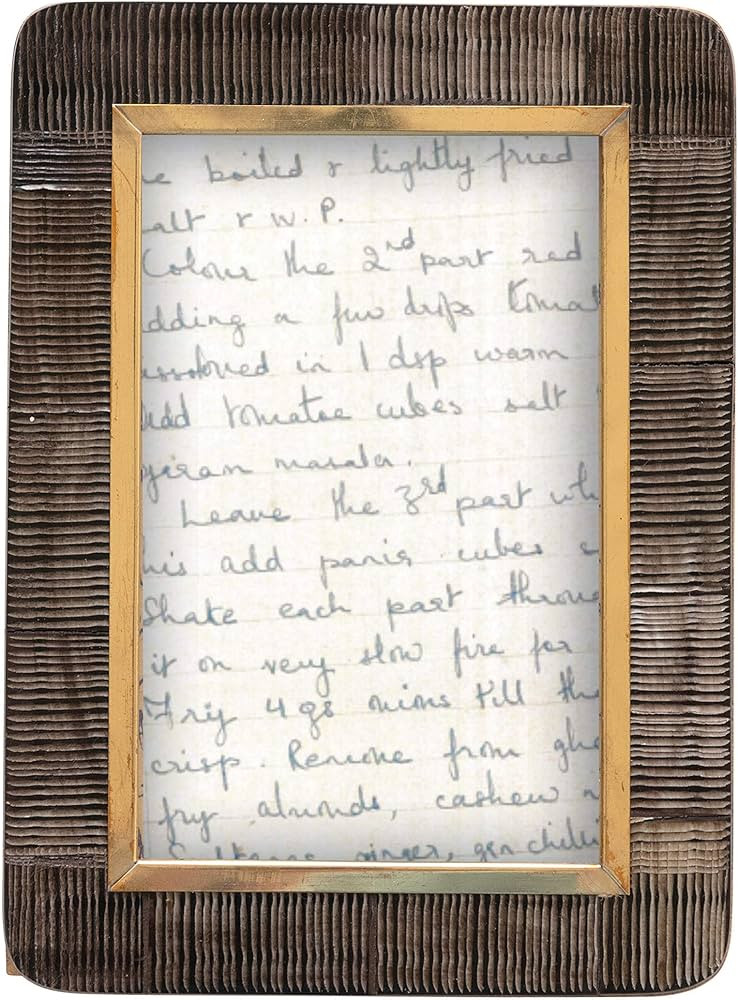 e boiled & lightly fried
alt & W.P.
Colour the 2nd part red
dding a few drps tomat
issolved in 1 dsp warm
Add tomatoe cubes salt
garam masala.
Leave the 3rd part whi
his add panir cubes
Shake each part throu
it on very slow fire for
Fry 4 gs onions till the
crisp. Remove from ghe
fry almonds, cashew n
Sultanas ginger, grn chilli